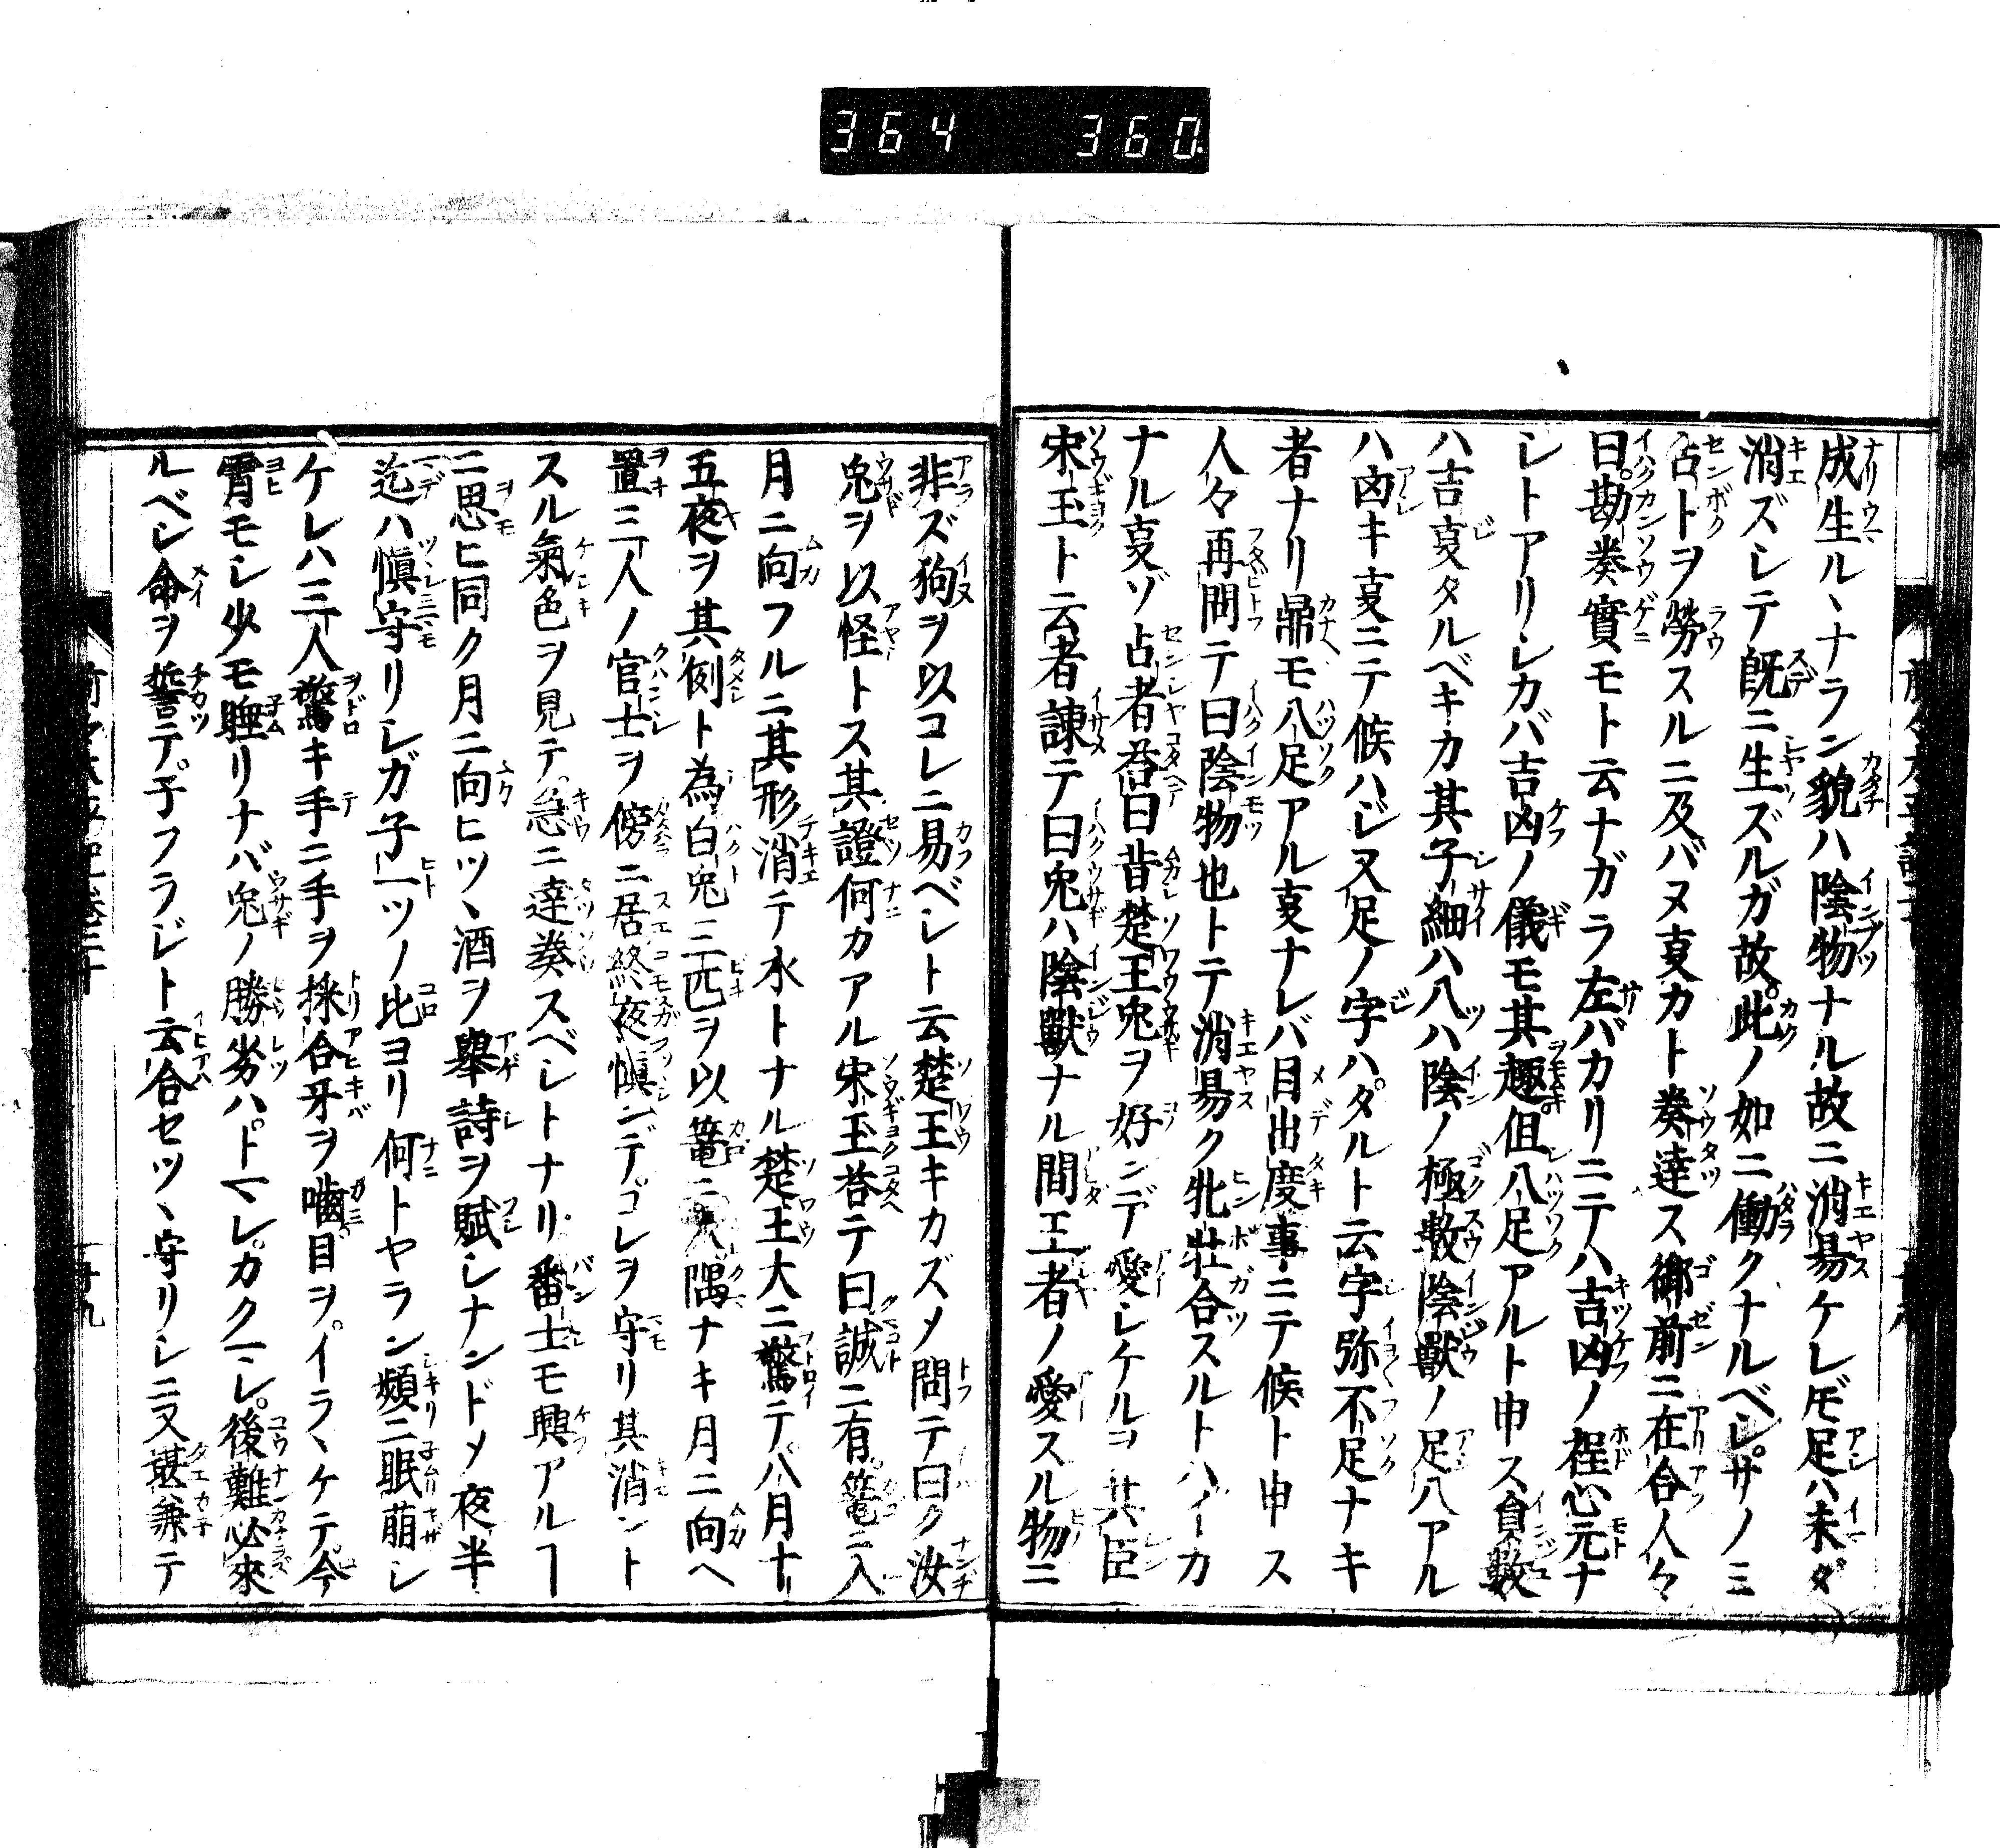 364 360
成生ルヽナラン貌ハ陰物ナル故ニ消易ケレ𪜈足ハ未ダ
消ズシテ既ニ生ズルガ故此ノ如ニ働クナルベシサノミ
占トヲ勞スルニ及バヌ夏カト奏達ス御前ニ在合人々
曰勘奏實モト云ナガラ左バカリニテハ吉凶ノ程心元ナ
シトアリシカバ吉凶ノ儀モ其趣但八足アルト申ス負數
ハ吉夏タルベキカ其子細ハ八ハ陰ノ極數陰獸ノ足八アル
ハ凶キ夏ニテ候ハジ又足ノ字ハタルト云字弥不足ナキ
者ナリ鼎モ八足アル夏ナレバ目出度事ニテ候ト申ス
人々再問テ曰陰物也トテ消易ク牝牡合スルトハイカ
ナル夏ゾ占者荅曰昔楚王兎ヲ好ンデ愛シケルヲ其臣
宋玉ト云者諫テ曰兎ハ陰獸ナル間王者ノ愛スル物ニ
非ズ狗ヲ以コレニ易ベシト云楚王キカズメ問テ曰ク汝
兎ヲ以怪トス其證何カアル宋玉荅テ曰誠ニ有篭ニ入
月ニ向フルニ其形消テ水トナル楚王大ニ驚テ八月十
五夜ヲ其例ト為白兎三匹ヲ以篭ニ入隅ナキ月ニ向ヘ
置三人ノ官士ヲ傍ニ居終夜慎ンデコレヲ守リ其消ント
スル氣色ヲ見テ急ニ達奏スベシトナリ番士モ興アルヿ
ニ思ヒ同ク月ニ向ヒツヽ酒ヲ擧詩ヲ賦シナンドメ夜半
迄ハ愼守リシガ子一ツノ比ヨリ何トヤラン頻ニ眠萠シ
ケレハ三人驚キ手ニ手ヲ採合牙ヲ嚙目ヲイラヽケテ今
霄モシ少モ睡リナバ兎ノ勝劣ハトマレカクマレ後難必來
ルベシ命ヲ誓テ子フラジト云合セツヽ守リシニ又堪兼テ